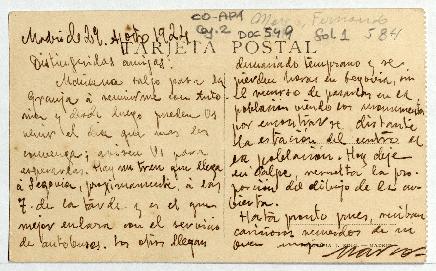 CO-AP1 Marco, Fernando
Cj. 2 DOC 549 Gol 1 584
Madrid 29, Agosto 1924
TARJETA POSTAL
Distinguidas amigas:
Mañana salgo para la
Granja a reunirme con
y desde luego pueden Vs
venir el día que mas les
convenga; avisen Vs para
esperarlas. Hay un tren que llega
a Segovia, proximamente, a las
7 de la tarde y es el que
mejor enlaza con el servicio
de autobuses. Los otros llegan
demasiado temprano y se
pierden horas en Segovia, sin
el recurso de pasarlas en la
población viendo los monumentos
por encontrarse distante
la estación del centro de
la población. Hoy dije
en Calpe, resuelta la pro-
porción del dibujo de la cu-
bierta.
Hasta pronto pues, reciban
cariñosos recuerdos de su
buen amigo
Marco
MADRID